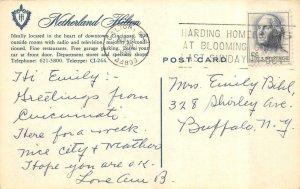 Netherland Hilton
Ideally located in the heart of downtown Cincinnati,
outside rooms with radio and television,
Fine restaurants. Free garage parking.
car at front door. Department stores and specialty shops
Telephone: 621-3800. Teletype: CI-264
HARDING HOME
AT BLOOMING
POST CARD
Hi Emily:-
Greetings from
Cincinnati
Here for a week
nice city & weather
Hope you are ok.
Love Ann B.
Mrs. Emily Bihl
328 Shirley Ave.
Buffalo, N.Y.